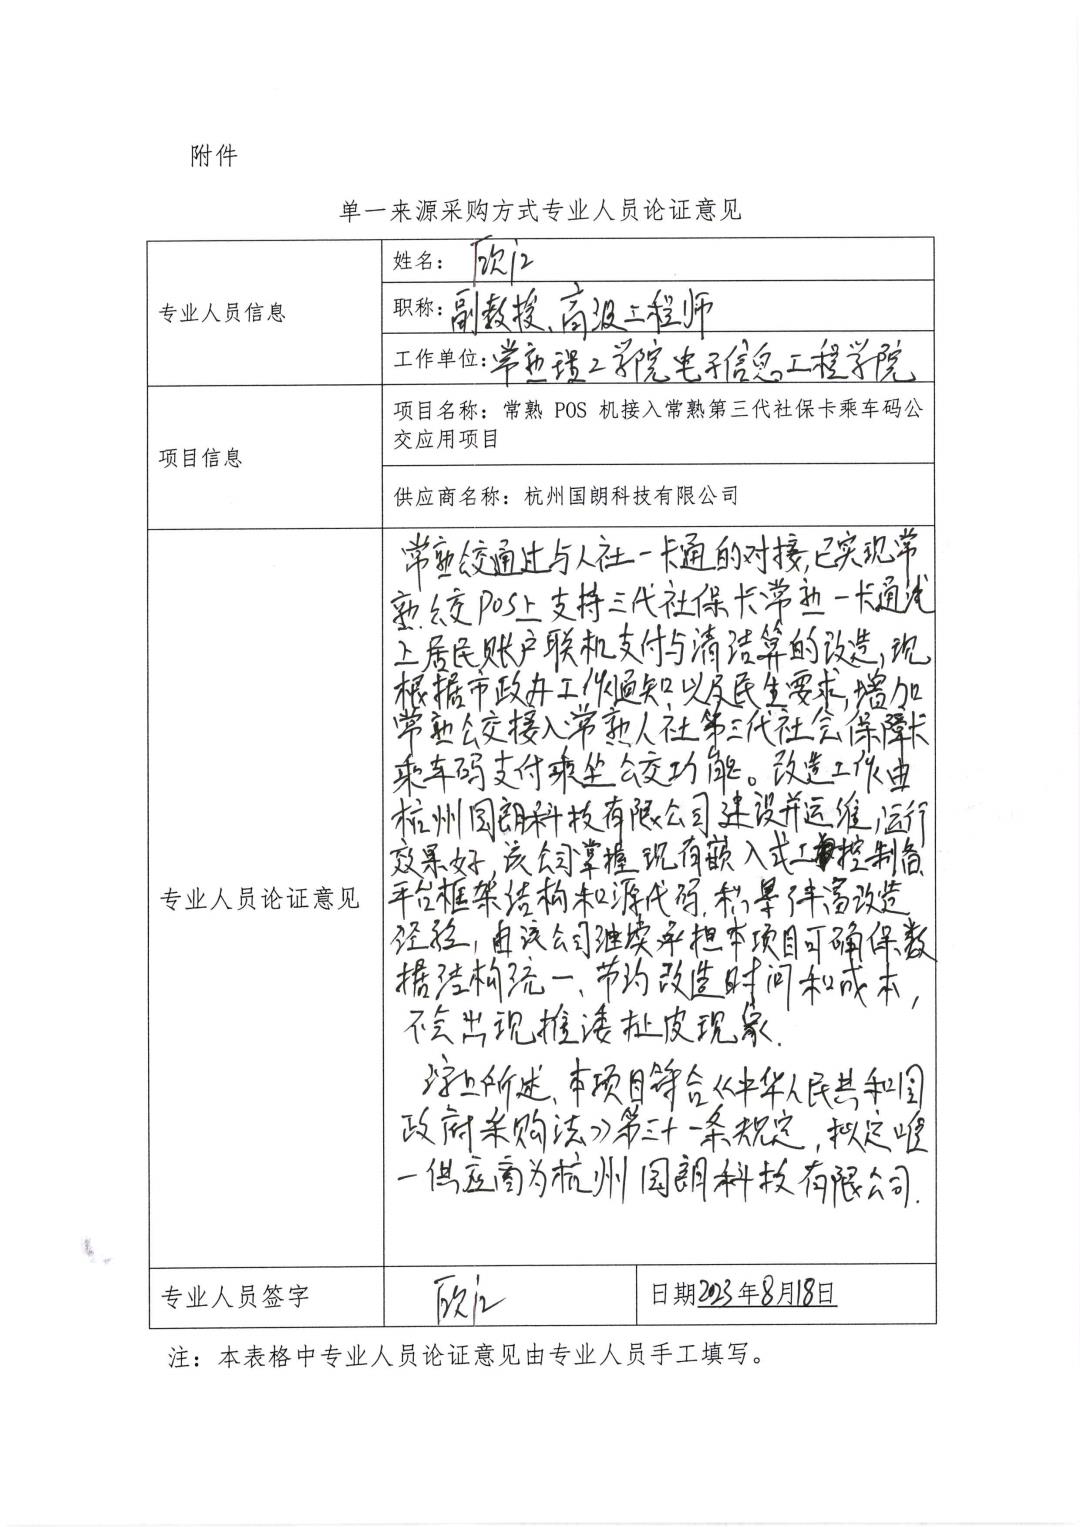 附件
单一来源采购方式专业人员论证意见
专业人员信息
姓名：
职称：副教授、高级工程师
工作单位：常熟理工学院电子信息工程学院
项目信息
项目名称：常熟 POS 机接入常熟第三代社保卡乘车码公
交应用项目
供应商名称：杭州国朗科技有限公司
专业人员论证意见
常熟公交通过与人社一卡通的对接，已实现常
熟公交POS上支持三代社保卡常熟一卡通线
上居民账户联机支付与清结算的改造，现
根据市政办工作通知以及民生要求，增加
常熟公交接入常熟人社第三代社会保障卡
乘车码支付乘坐公交功能。改造工作由
杭州国朗科技有限公司建设并运维，运行
效果好，该公司掌握现有嵌入式工控制备
平台框架结构和源代码，积累丰富改造
经验，由该公司继续承担本项目可确保数
据结构统一、节约改造时间和成本，
不会出现推诿扯皮现象.
综上所述、本项目符合《中华人民共和国
政府采购法》第三十一条规定，拟定唯
一供应商为杭州国朗科技有限公司.
专业人员签字
日期2023年8月18日
注：本表格中专业人员论证意见由专业人员手工填写。